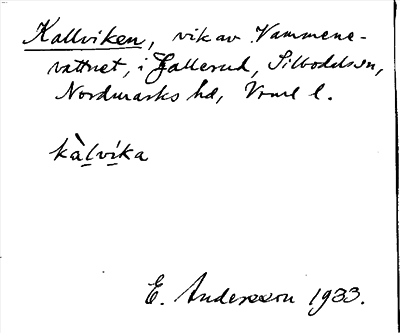 Kallviken, vik av Vammene-
vattnet, i Fallerud, Silbodals sn,
Nordmarks hd, Vrml l.
kàlvíka
E. Andersson 1933.